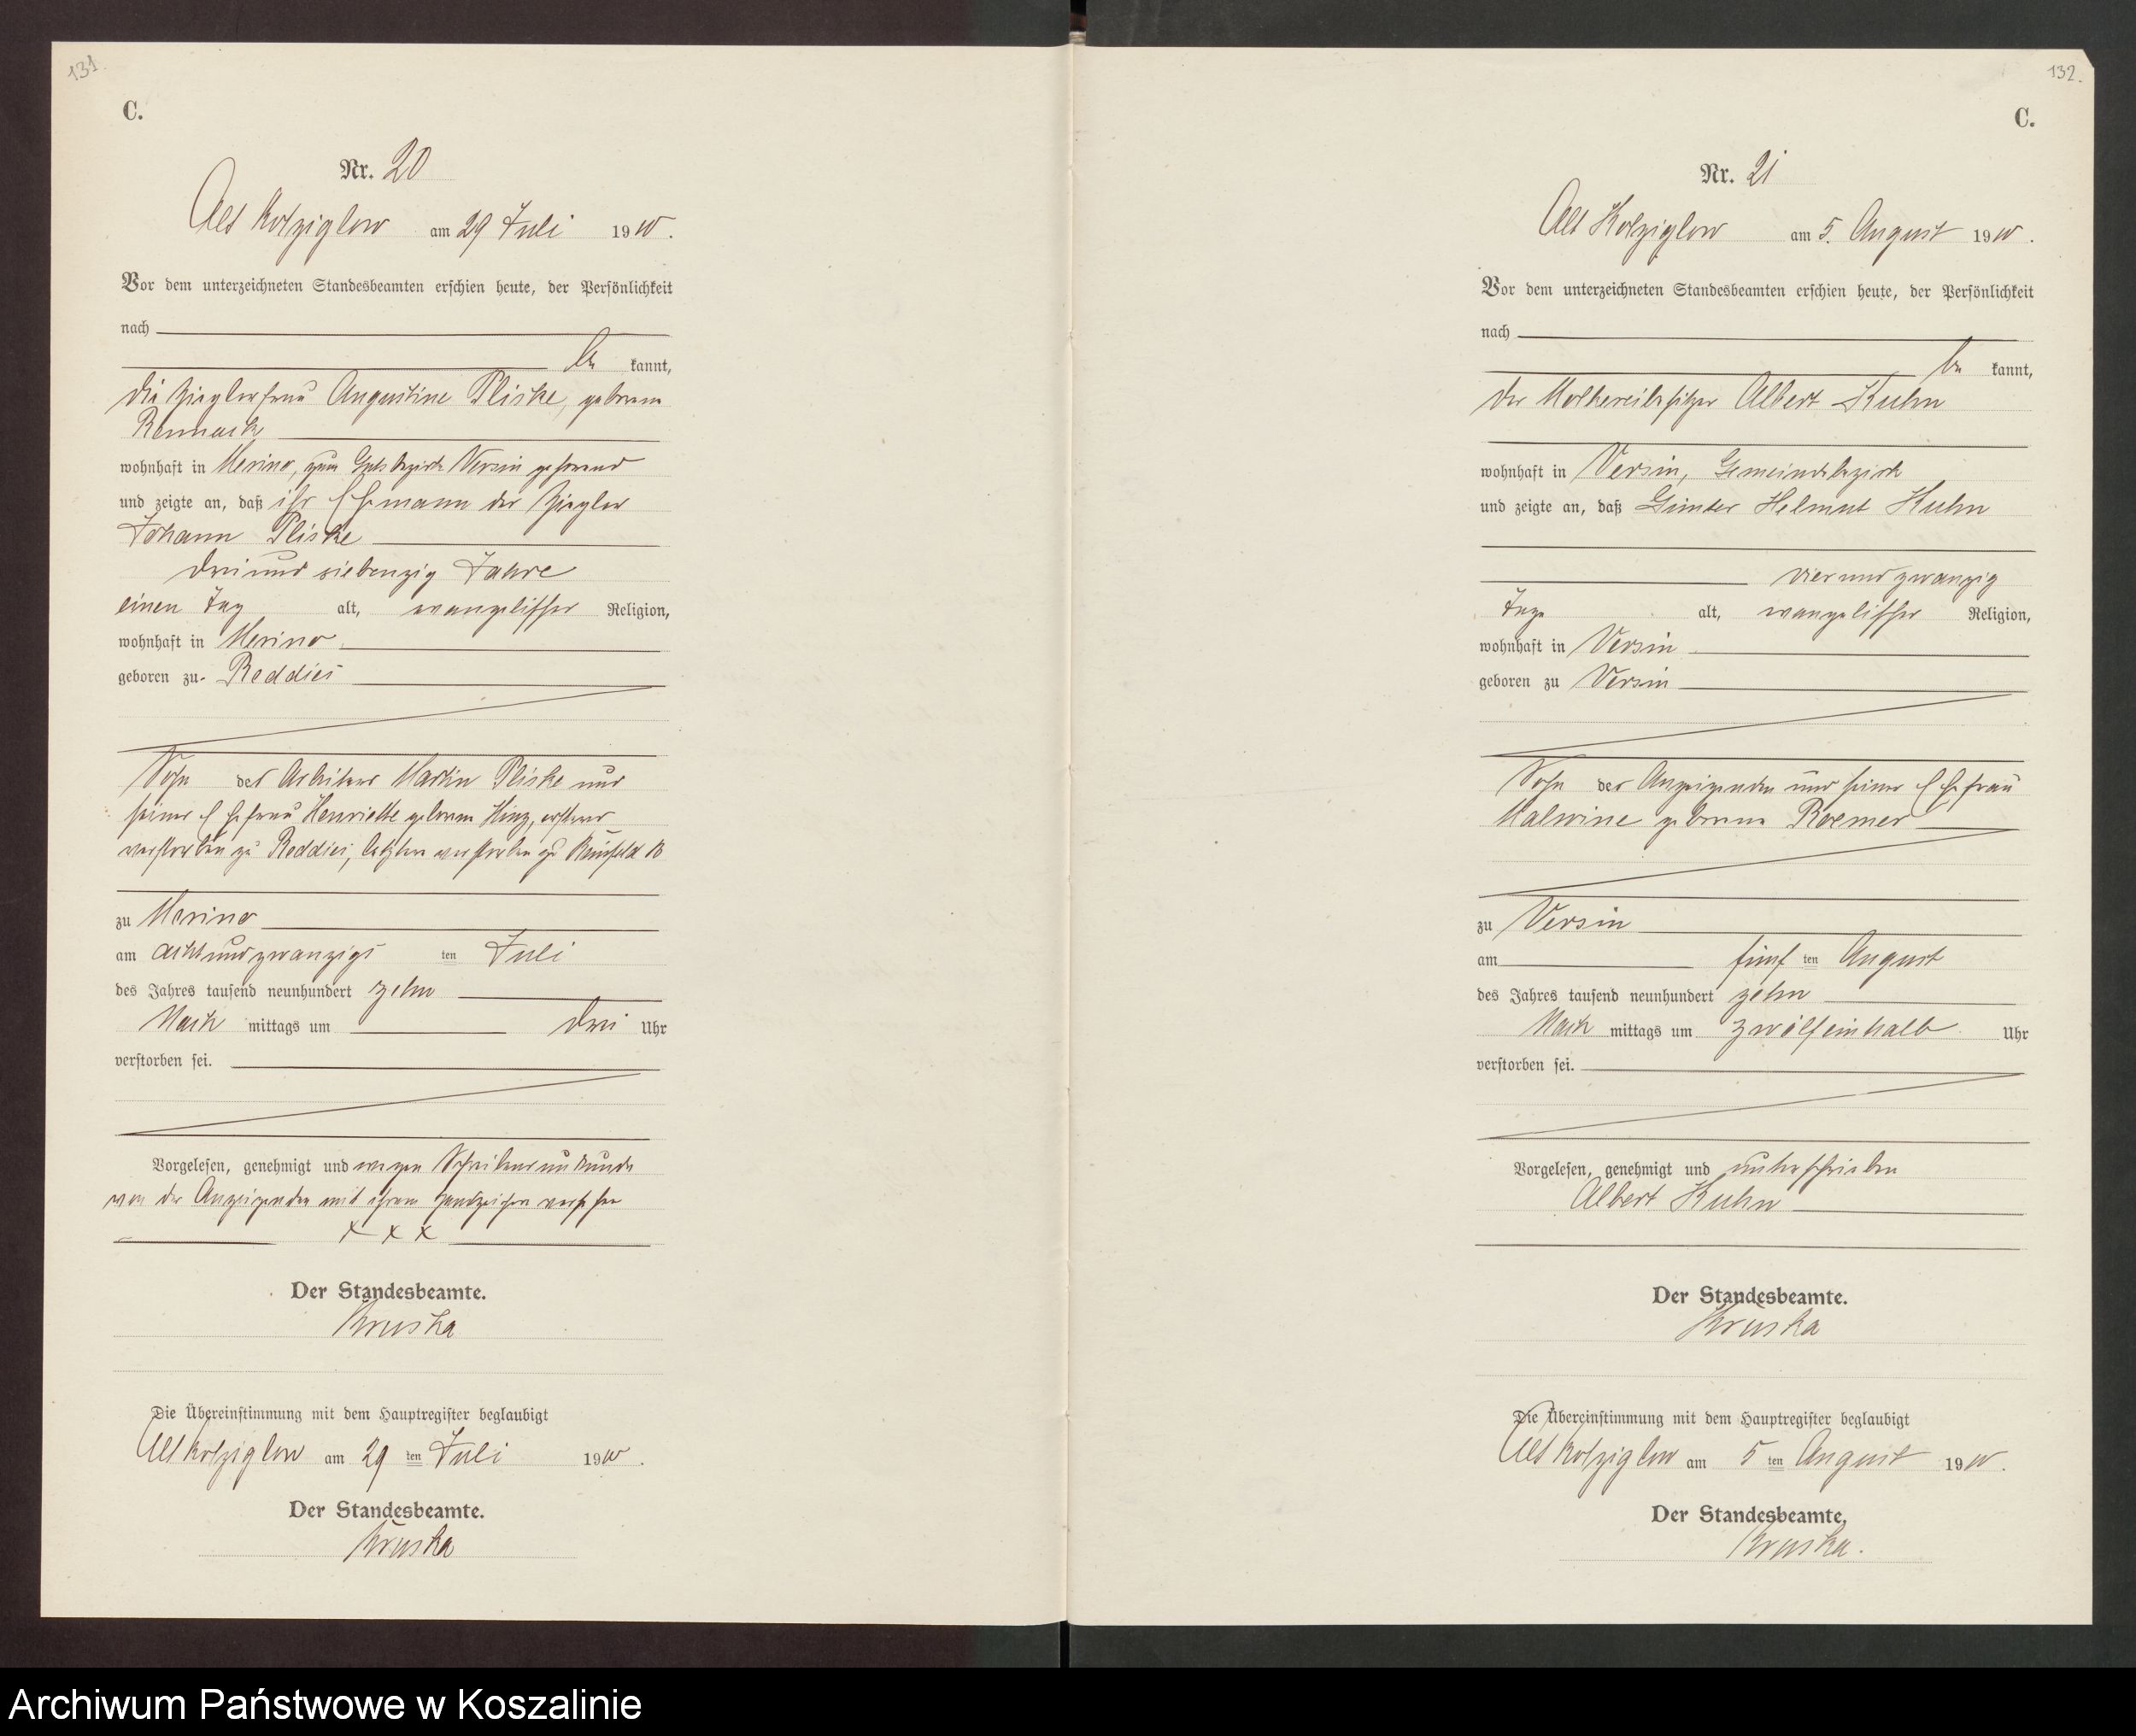 131.
C.
Nr. 20
Alt Kolziglow am 29 Juli 1910.
Vor dem unterzeichneten Standesbeamten erschien heute, der Persönlichkeit
nach
be kannt,
die Zieglerfrau Augustine Pliske, geborene
wohnhaft in Merino, zum Gutsbezirk Versin gehörend
und zeigte an, daß ihr Ehemann der Ziegler
Johann Pliske
drei und siebenzig Jahre
einen Tag alt, evangelischer Religion,
wohnhaft in Merino
geboren zu Reddies
Sohn des Arbeiters Martin Pliske und
seiner Ehefrau Henriette geborene Hinz, ersterer
verstorben zu Reddies, letztere verstorben zu
zu Merino
am acht und zwanzigs ten Juli
des Jahres tausend neunhundert zehn
Nach mittags um drei Uhr
verstorben sei.
Vorgelesen, genehmigt und wegen Schreibensunkunde
von der Anzeigenden mit ihrem Handzeichen versehen
x x x
Der Standesbeamte.
Kruska
Die Übereinstimmung mit dem Hauptregister beglaubigt
Alt Kolziglow am 29 ten Juli 1910.
Der Standesbeamte.
Kruska
132.
C.
Nr. 21
Alt Kolziglow am 5. August 1910.
Vor dem unterzeichneten Standesbeamten erschien heute, der Persönlichkeit
nach
be kannt,
der Molkereibesitzer Albert Kuhn
wohnhaft in Versin, Gemeindebezirk
und zeigte an, daß Günter Helmut Kuhn
vier und zwanzig
Tage alt, evangelischer Religion,
wohnhaft in Versin
geboren zu Versin
Sohn des Anzeigenden und seiner Ehefrau
Malwine geborene Roemer
zu Versin
am fünf ten August
des Jahres tausend neunhundert zehn
Nach mittags um zwölfeinhalb Uhr
verstorben sei.
Vorgelesen, genehmigt und unterschrieben
Albert Kuhn
Der Standesbeamte.
Kruska
Die Übereinstimmung mit dem Hauptregister beglaubigt
Alt Kolziglow am 5 ten August 1910.
Der Standesbeamte.
Kruska.
Archiwum Państwowe w Koszalinie